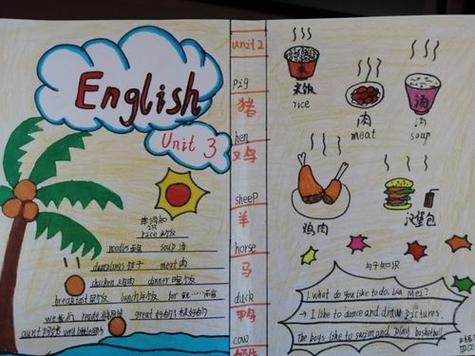 English
Unit 3
单词知识
rice 米饭
noodles 面条 soup 汤
dumplings 饺子 meat 肉
chicken 鸡肉 dinner
breakfast 早饭 lunch 午饭 for
ready great
aunt
unit 2
pig
猪
hen
鸡
sheep
羊
horse
马
duck
鸭
cow
奶牛
米饭
rice
肉
meat
汤
汤
soup
鸡肉
汉堡包
句子知识
1. what do you like to do,
→ I like to dance and draw pictures.
The boys like to swim and play basketball.